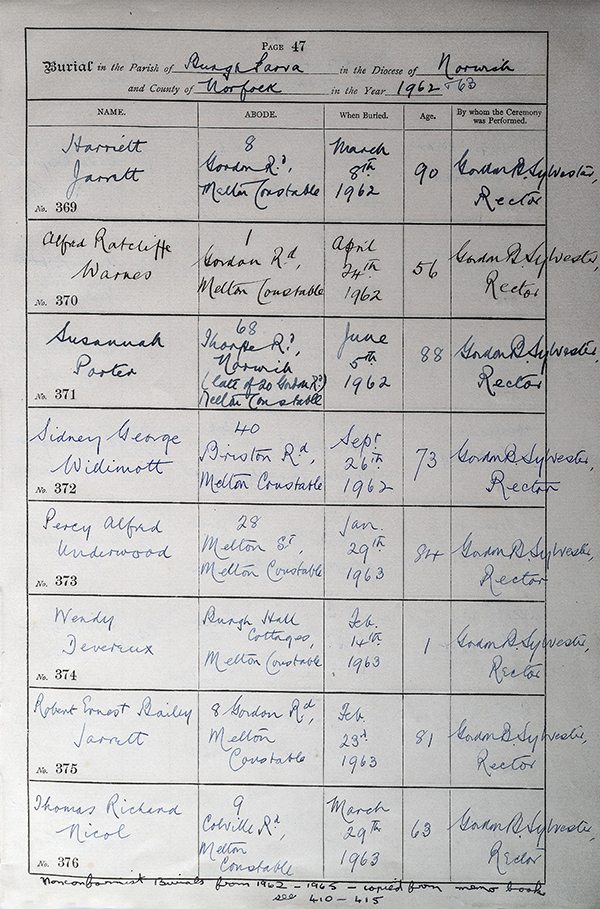 PAGE 47
Burial in the Parish of Burgh Parva in the Diocese of Norwich
and County of Norfolk in the Year 1962 & 63
NAME. ABODE. When Buried. Age. By whom the Ceremony was Performed.
Harriett
Jarrett
No. 369
8
Gordon Rd,
Melton Constable
March
8th
1962
90
Gordon B. Sylvester,
Rector
Alfred Ratcliffe
Warnes
No. 370
1
Gordon Rd,
Melton Constable
April
24th
1962
56
Gordon B. Sylvester,
Rector
Susannah
Porter
No. 371
68
Thorpe Rd,
Norwich
(late of 20 Gordon Rd)
Melton Constable
June
5th
1962
88
Gordon B. Sylvester,
Rector
Sidney George
Widimott
No. 372
40
Briston Rd,
Melton Constable
Sept
26th
1962
73
Gordon B. Sylvester,
Rector
Percy Alfred
Underwood
No. 373
28
Melton St,
Melton Constable
Jan.
29th
1963
84
Gordon B. Sylvester,
Rector
Wendy
Devereux
No. 374
Burgh Hall
Cottages,
Melton Constable
Feb.
14th
1963
1
Gordon B. Sylvester,
Rector
Robert Ernest Bailey
Jarrett
No. 375
8 Gordon Rd,
Melton
Constable
Feb.
23rd
1963
81
Gordon B. Sylvester,
Rector
Thomas Richard
Nicol
No. 376
9
Colville Rd,
Melton
Constable
March
29th
1963
63
Gordon B. Sylvester,
Rector
Nonconformist Burials from 1962 - 1965 - copied from memo book
see 410 - 415